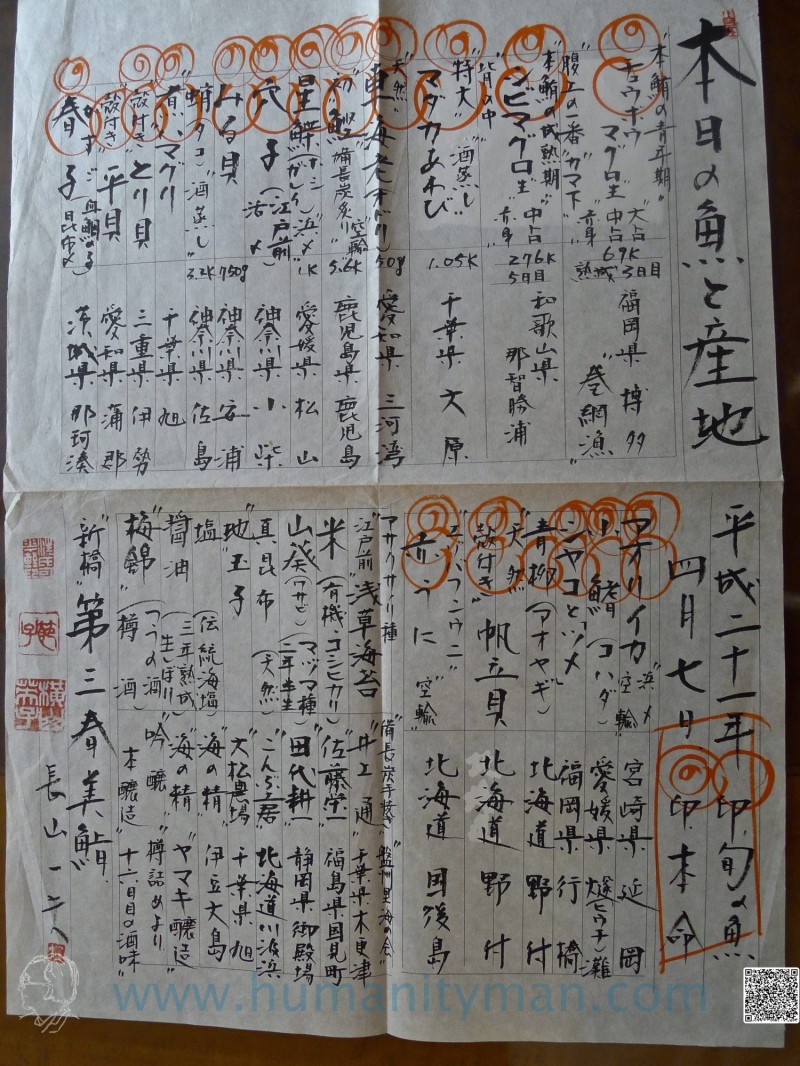 本日の魚と産地
"本鮪の青年期"
チュウボウ マグロ"生" 大占 中占 赤身 69K 熟成3日目 福岡県 博多
"腹上の一番" "カマ下" "巻網漁"
"本鮪の成熟期"
シビマグロ"生" 中占 赤身 276K 5日目 和歌山県 那智勝浦
"背の中"
"特大" "酒蒸し"
マダカあわび 1.05K 千葉県 大原
"天然"
車海老(オドリ) 50g 愛知県 三河湾
初鰹 備長炭炙り "空輸" 5.6K 鹿児島県 鹿児島
星鰈 "浜〆" 1K 愛媛県 松山
穴子(江戸前) 活〆 神奈川県 小柴
みる貝 750g 神奈川県 安浦
蛸(タコ) "酒蒸し" 3.2K 神奈川県 佐島
煮ハマグリ 千葉県 旭
"殻付き" とり貝 三重県 伊勢
"殻付き" 平貝 愛知県 蒲郡
春子 "かすご" "血鯛の子" 昆布〆 茨城県 那珂湊
平成二十一年 印.旬の魚
四月七日 の印.本命
アオリイカ "浜〆" "空輸" 宮崎県 延岡
小鰭(コハダ) 愛媛県 燧(ヒウチ)灘
シャコと"ツメ" 福岡県 行橋
青柳(アオヤギ) 北海道 野付
"天然"
"殻付き" 帆立貝 北海道 野付
"エゾバフンウニ"
赤うに "空輸" 北海道 国後島
アサクサノリ種 "備長炭手焙" "盤州里海の会"
"江戸前"浅草海苔 "井上 通" 千葉県木更津
米(有機・コシヒカリ) "佐藤栄一" 福島県国見町
山葵(ワサビ)(マヅマ種 二年半生) "田代耕一" 静岡県御殿場
真昆布(天然) "こんぶ土居" 北海道川汲浜
"地"玉子 "大松農場" 千葉県 旭
塩(伝統海塩) "海の精" 伊豆大島
醤油(三年熟成 生しぼり) "海の精" "ヤマキ醸造"
"梅錦"(樽酒) "つうの酒" "吟醸" 本醸造 "樽詰めより 十六日目の酒味"
"新橋"第三春美鮨"
長山一夫
www.humanityman.com